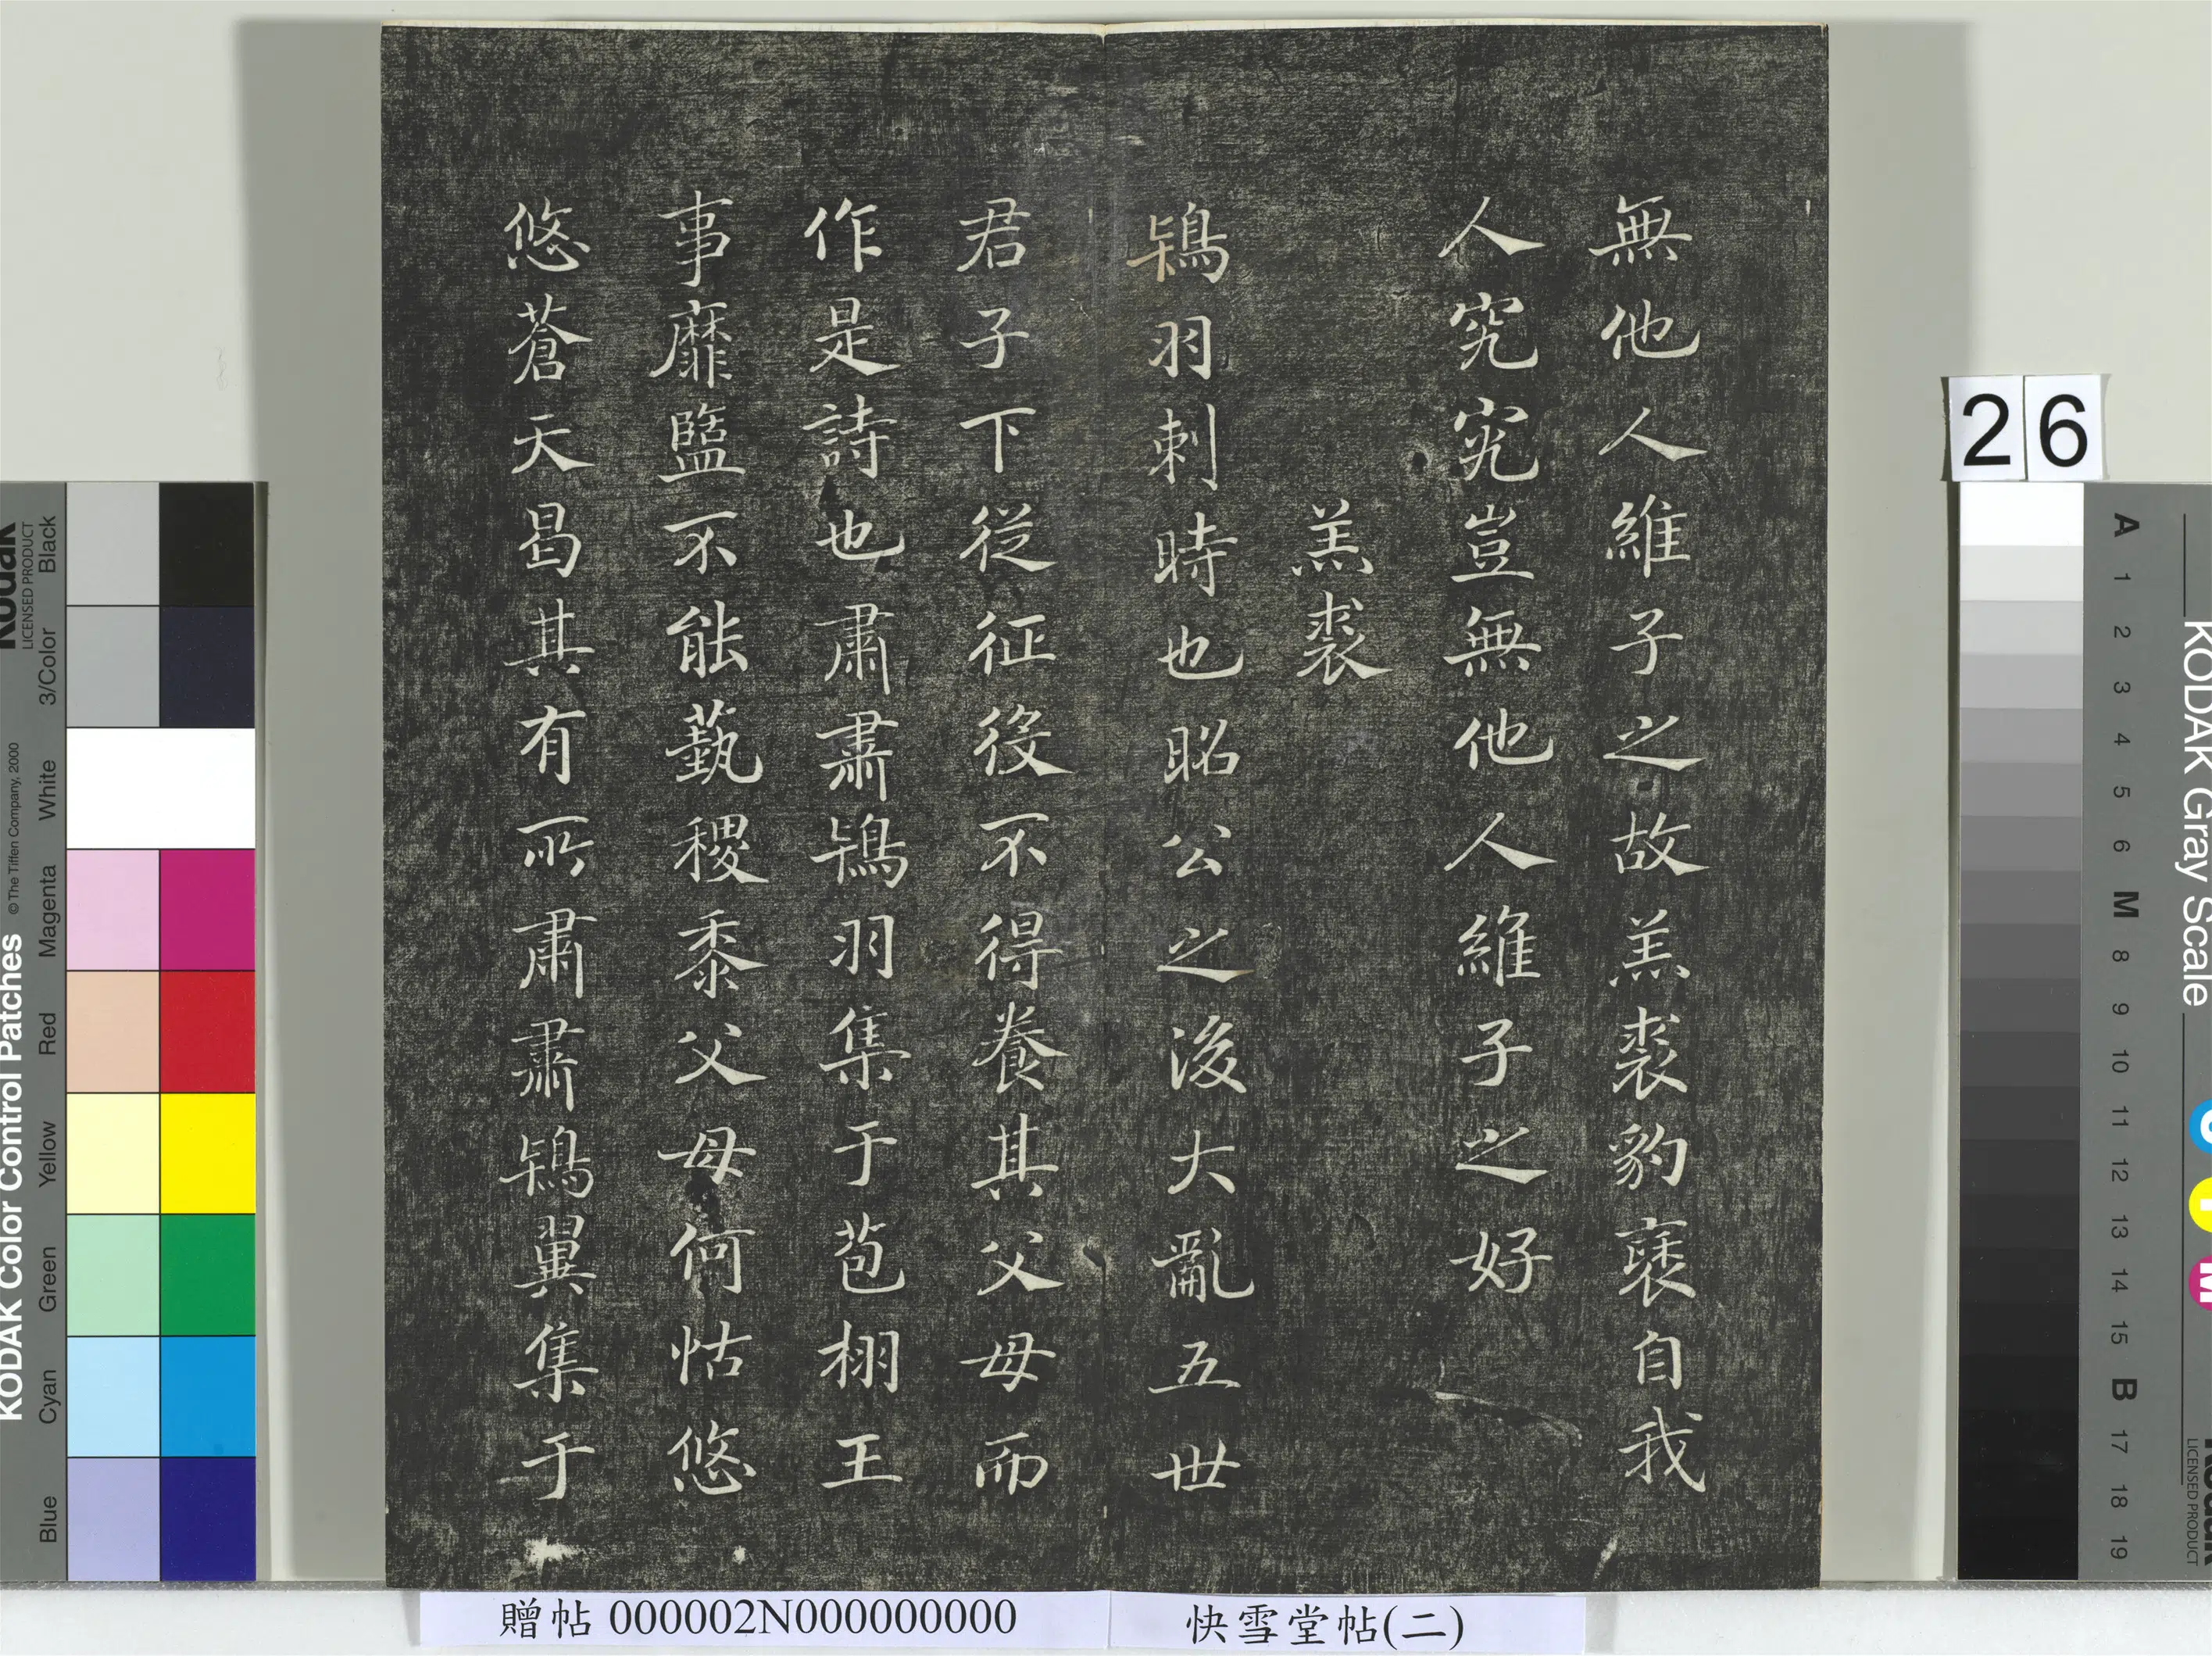 無他人維子之故羔裘豹褎自我
人究究豈無他人維子之好
羔裘
鴇羽刺時也昭公之後大亂五世
君子下從征役不得養其父母而
作是詩也肅肅鴇羽集于苞栩王
事靡盬不能蓺稷黍父母何怙悠
悠蒼天曷其有所肅肅鴇翼集于
贈帖 000002N000000000
快雪堂帖(二)
26
KODAK Color Control Patches
© The Tiffen Company, 2000
Kodak
LICENSED PRODUCT
Black
3/Color
White
Magenta
Red
Yellow
Green
Cyan
Blue
KODAK Gray Scale
A 1 2 3 4 5 6 M 8 9 10 11 12 13 14 15 B 17 18 19
C
Y
M
Kodak
LICENSED PRODUCT